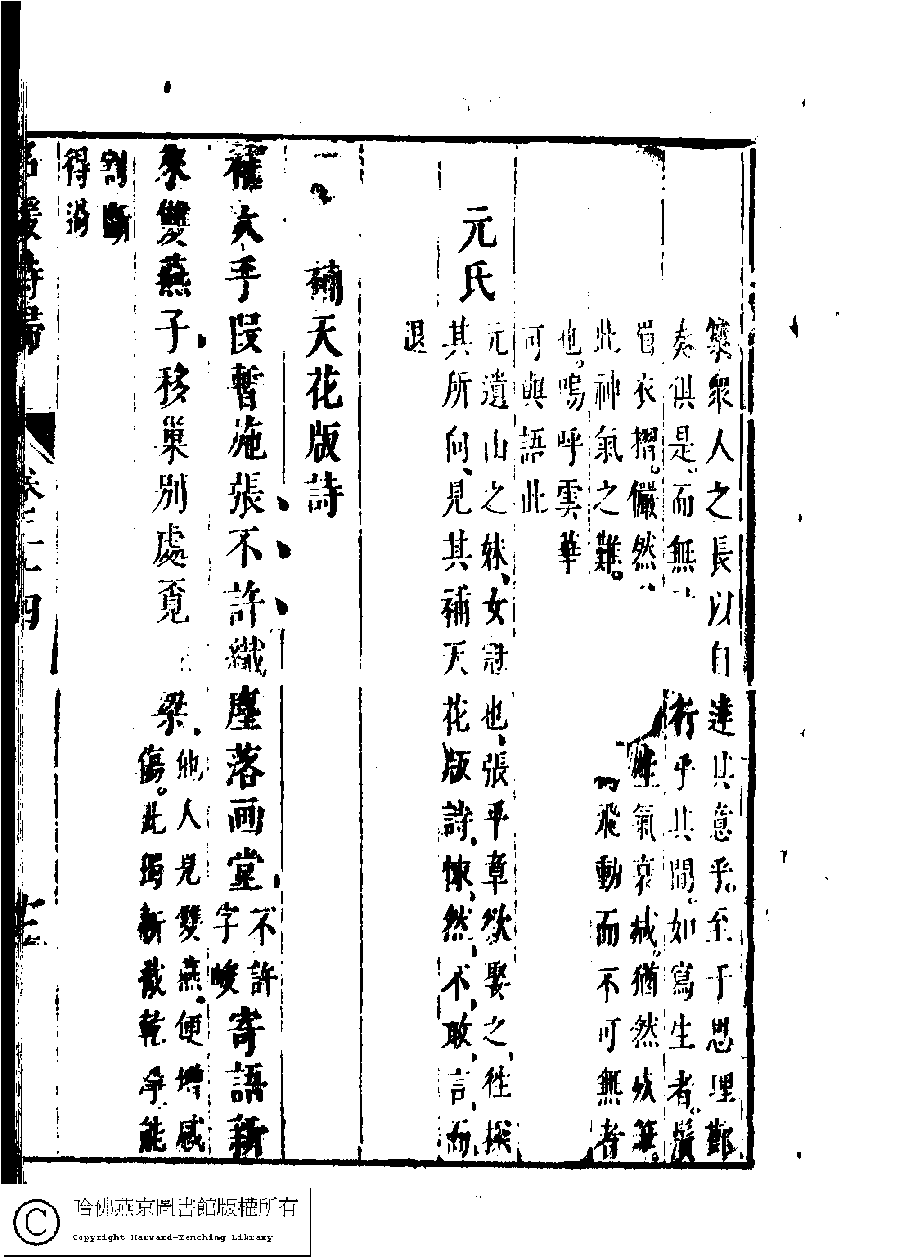 篆衆人之長以自達其意乎至于思理鄭
奏俱是而無行乎其間如寫生者鬚
眉衣摺儼然生氣衰減猶然
此神氣之難飛動而不可無者
也嗚呼雲華
可與語此
元氏
元遺山之妹女冠也張平章欲娶之往探
其所向見其補天花版詩悚然不敢言而
退
補天花版詩
補天手段暫施張不許纖塵落画堂
不許
字峻
寄語新
來雙燕子移巢別處覓
梁
他人見雙燕便增感
傷此獨新裁乾淨能
割斷
得
名媛詩歸
卷二十四
哈佛燕京圖書館版權所有
Copyright Harvard-Yenching Library